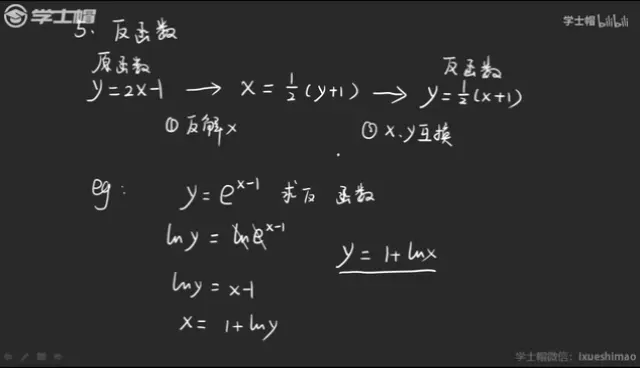 学士帽
学士帽 bilibili
5、反函数
原函数
反函数
y=2x-1 → x=½(y+1) → y=½(x+1)
① 反解x
② x、y互换
eg: y=e^{x-1} 求反函数
lny=lne^{x-1}
y=1+lnx
lny=x-1
x=1+lny
学士帽微信：ixueshimao